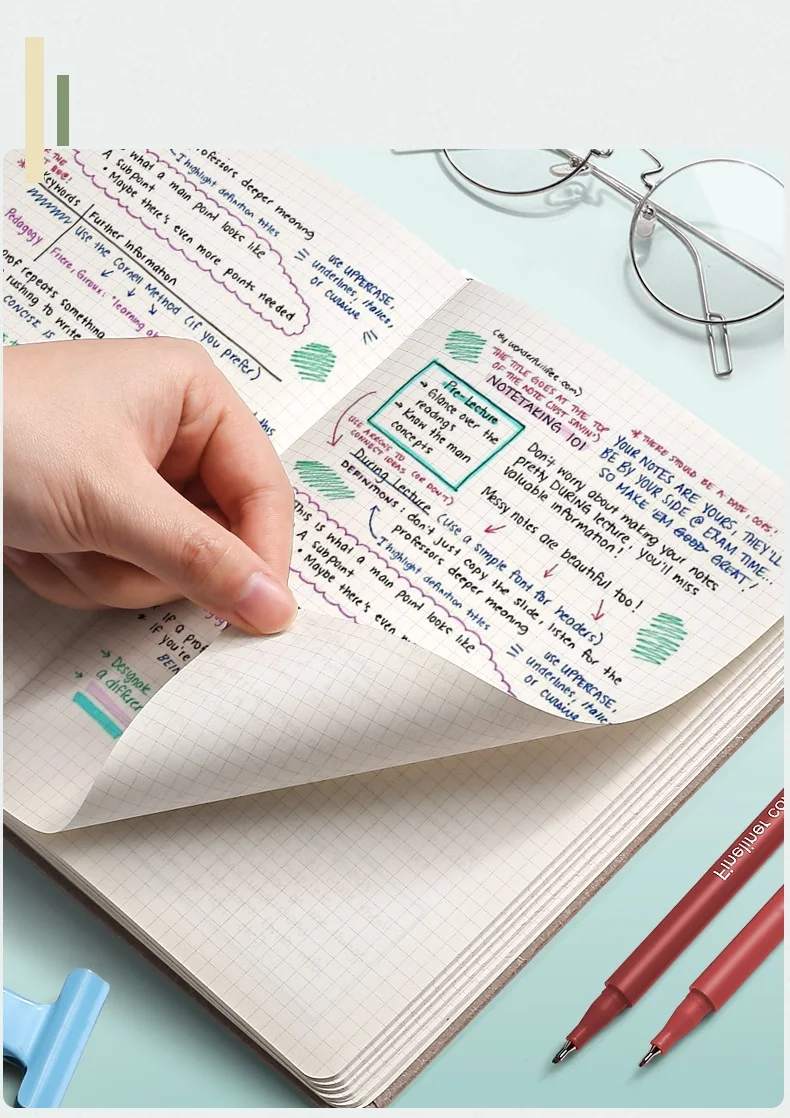 THE
keywords
Pedagogy
Further Information
Use the Cornell Method (if you prefer)
Friere, Giroux: "learning
prof repeats something
rushing to write
CONCISE IS
professors deeper meaning
I highlight definition titles
what a main point looks like
A subpoint
• Maybe there's even more points needed
use UPPERCASE,
underlines, italics,
or cursive
this
(by wonderfullifee.com)
THE TITLE GOES AT THE TOP
OF THE NOTE (JUST SAYIN')
NOTETAKING 101
* THERE SHOULD BE A DATE, OOPS!
YOUR NOTES ARE YOURS, THEY'LL
BE BY YOUR SIDE @ EXAM TIME..
SO MAKE 'EM GOOD GREAT!
Pre-Lecture
→ Glance over the
readings
→ Know the main
concepts
Don't worry about making your notes
pretty DURING lecture, you'll miss
valuable information!
Messy notes are beautiful too!
USE ARROWS TO
CONNECT IDEAS (OR DON'T)
During Lecture (use a simple font for headers)
DEFINITIONS: don't just copy the slide, listen for the
professors deeper meaning
I highlight definition titles
This is what a main point looks like
A subpoint
• Maybe there's even
use UPPERCASE,
underlines, italic
or cursive
if a prof
if you're
BEIN
→ Designate
→ a differen
Fineliner co